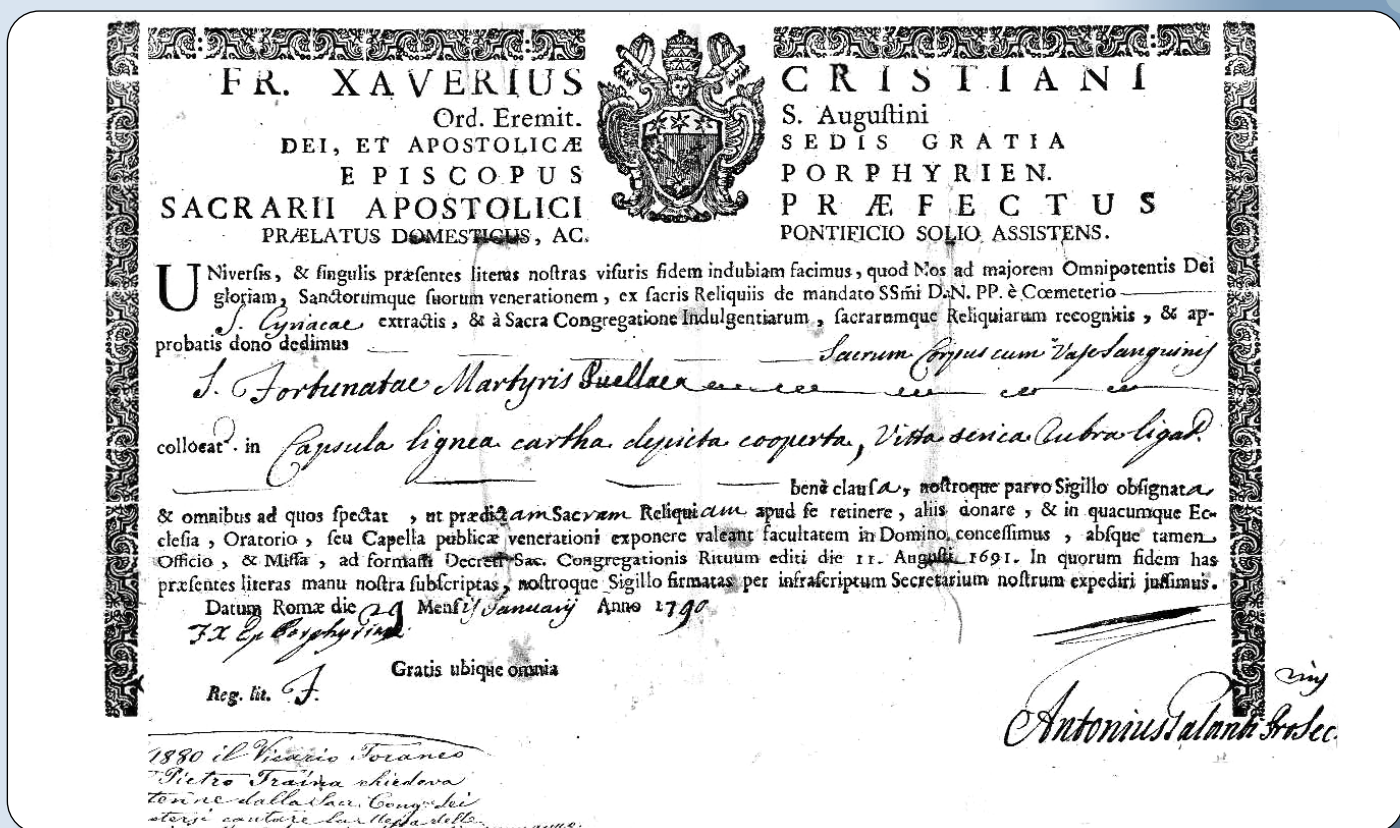 FR. XAVERIUS CRISTIANI
Ord. Eremit. S. Auguſtini
DEI, ET APOSTOLICÆ SEDIS GRATIA
EPISCOPUS PORPHYRIEN.
SACRARII APOSTOLICI PRÆFECTUS
PRÆLATUS DOMESTICUS, AC. PONTIFICIO SOLIO ASSISTENS.
UNiverſis, & ſingulis præſentes literas noſtras viſuris fidem indubiam facimus, quod Nos ad majorem Omnipotentis Dei
gloriam, Sanctorumque ſuorum venerationem, ex ſacris Reliquiis de mandato SSm̃i D.N. PP. è Cœmeterio
S. Cyriacae extractis, & à Sacra Congregatione Indulgentiarum, ſacrarumque Reliquiarum recognitis, & ap-
probatis dono dedimus Sacrum Corpus cum Vase Sanguinis
S. Fortunatae Martyris Puellae
collocat. in Capsula lignea cartha depicta cooperta, Vitta serica Rubra ligat.
benè clauſa, noſtroque parvo Sigillo obſignata
& omnibus ad quos ſpectat, ut prædictam Sacram Reliquiam apud ſe retinere, aliis donare, & in quacumque Ec-
cleſia, Oratorio, ſeu Capella publicæ venerationi exponere valeant facultatem in Domino conceſſimus, abſque tamen
Officio, & Miſſa, ad formam Decreti Sac. Congregationis Rituum editi die 11. Auguſti 1691. In quorum fidem has
præſentes literas manu noſtra ſubſcriptas, noſtroque Sigillo firmatas per infraſcriptum Secretarium noſtrum expediri juſſimus.
Datum Romæ die 29 Menſis Januarij Anno 1790
F X Ep Porphyrien
Gratis ubique omnia
Reg. lit. F.
Antonius Palanti ProSec.
1880 il Vicario Foraneo
Pietro Traina chiedova
tenne dalla Sac. Cong. dei
cantare la Messa delle